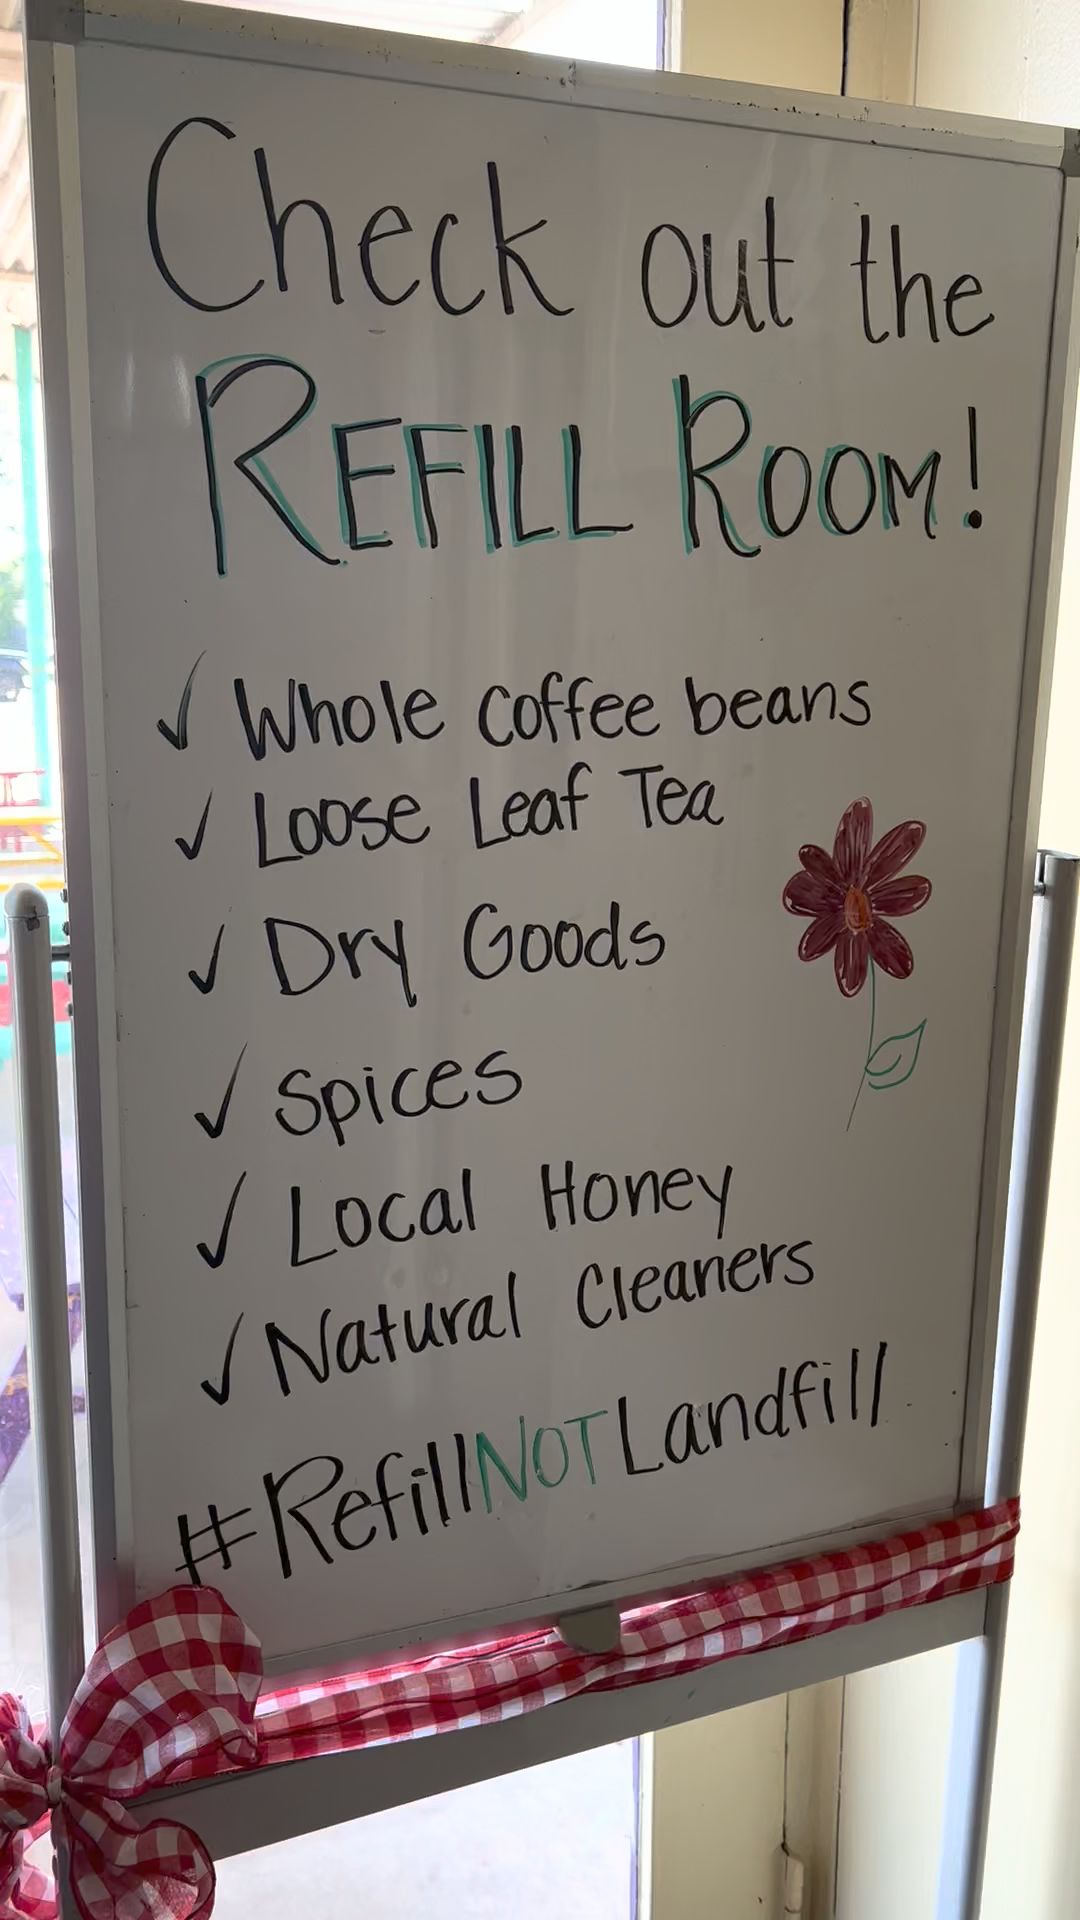 Check out the
REFILL ROOM!
✓ Whole coffee beans
✓ Loose Leaf Tea
✓ Dry Goods
✓ Spices
✓ Local Honey
✓ Natural Cleaners
#RefillNOTLandfill